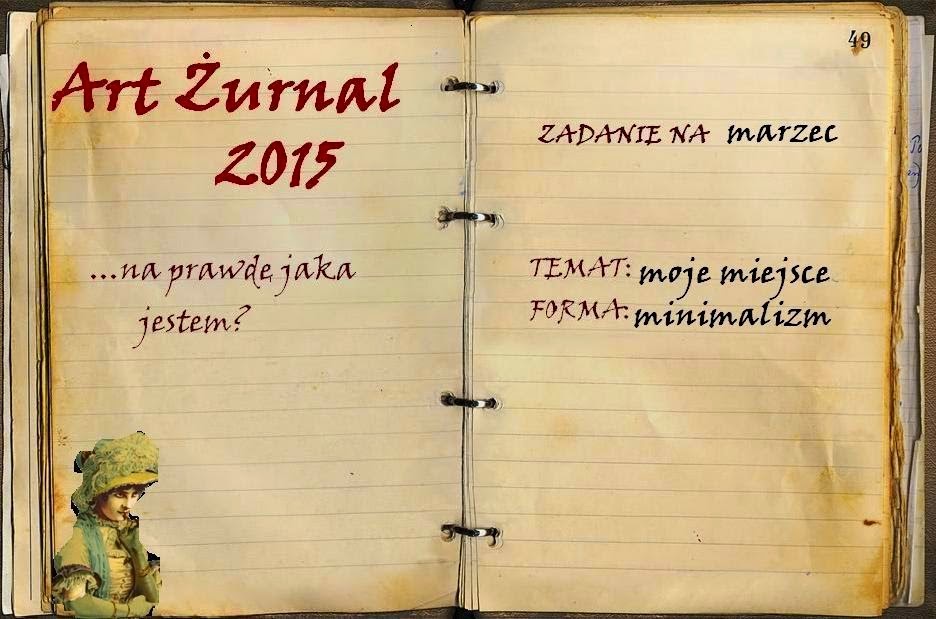 Art Żurnal
2015
...na prawdę jaka
jestem?
49
ZADANIE NA marzec
TEMAT: moje miejsce
FORMA: minimalizm